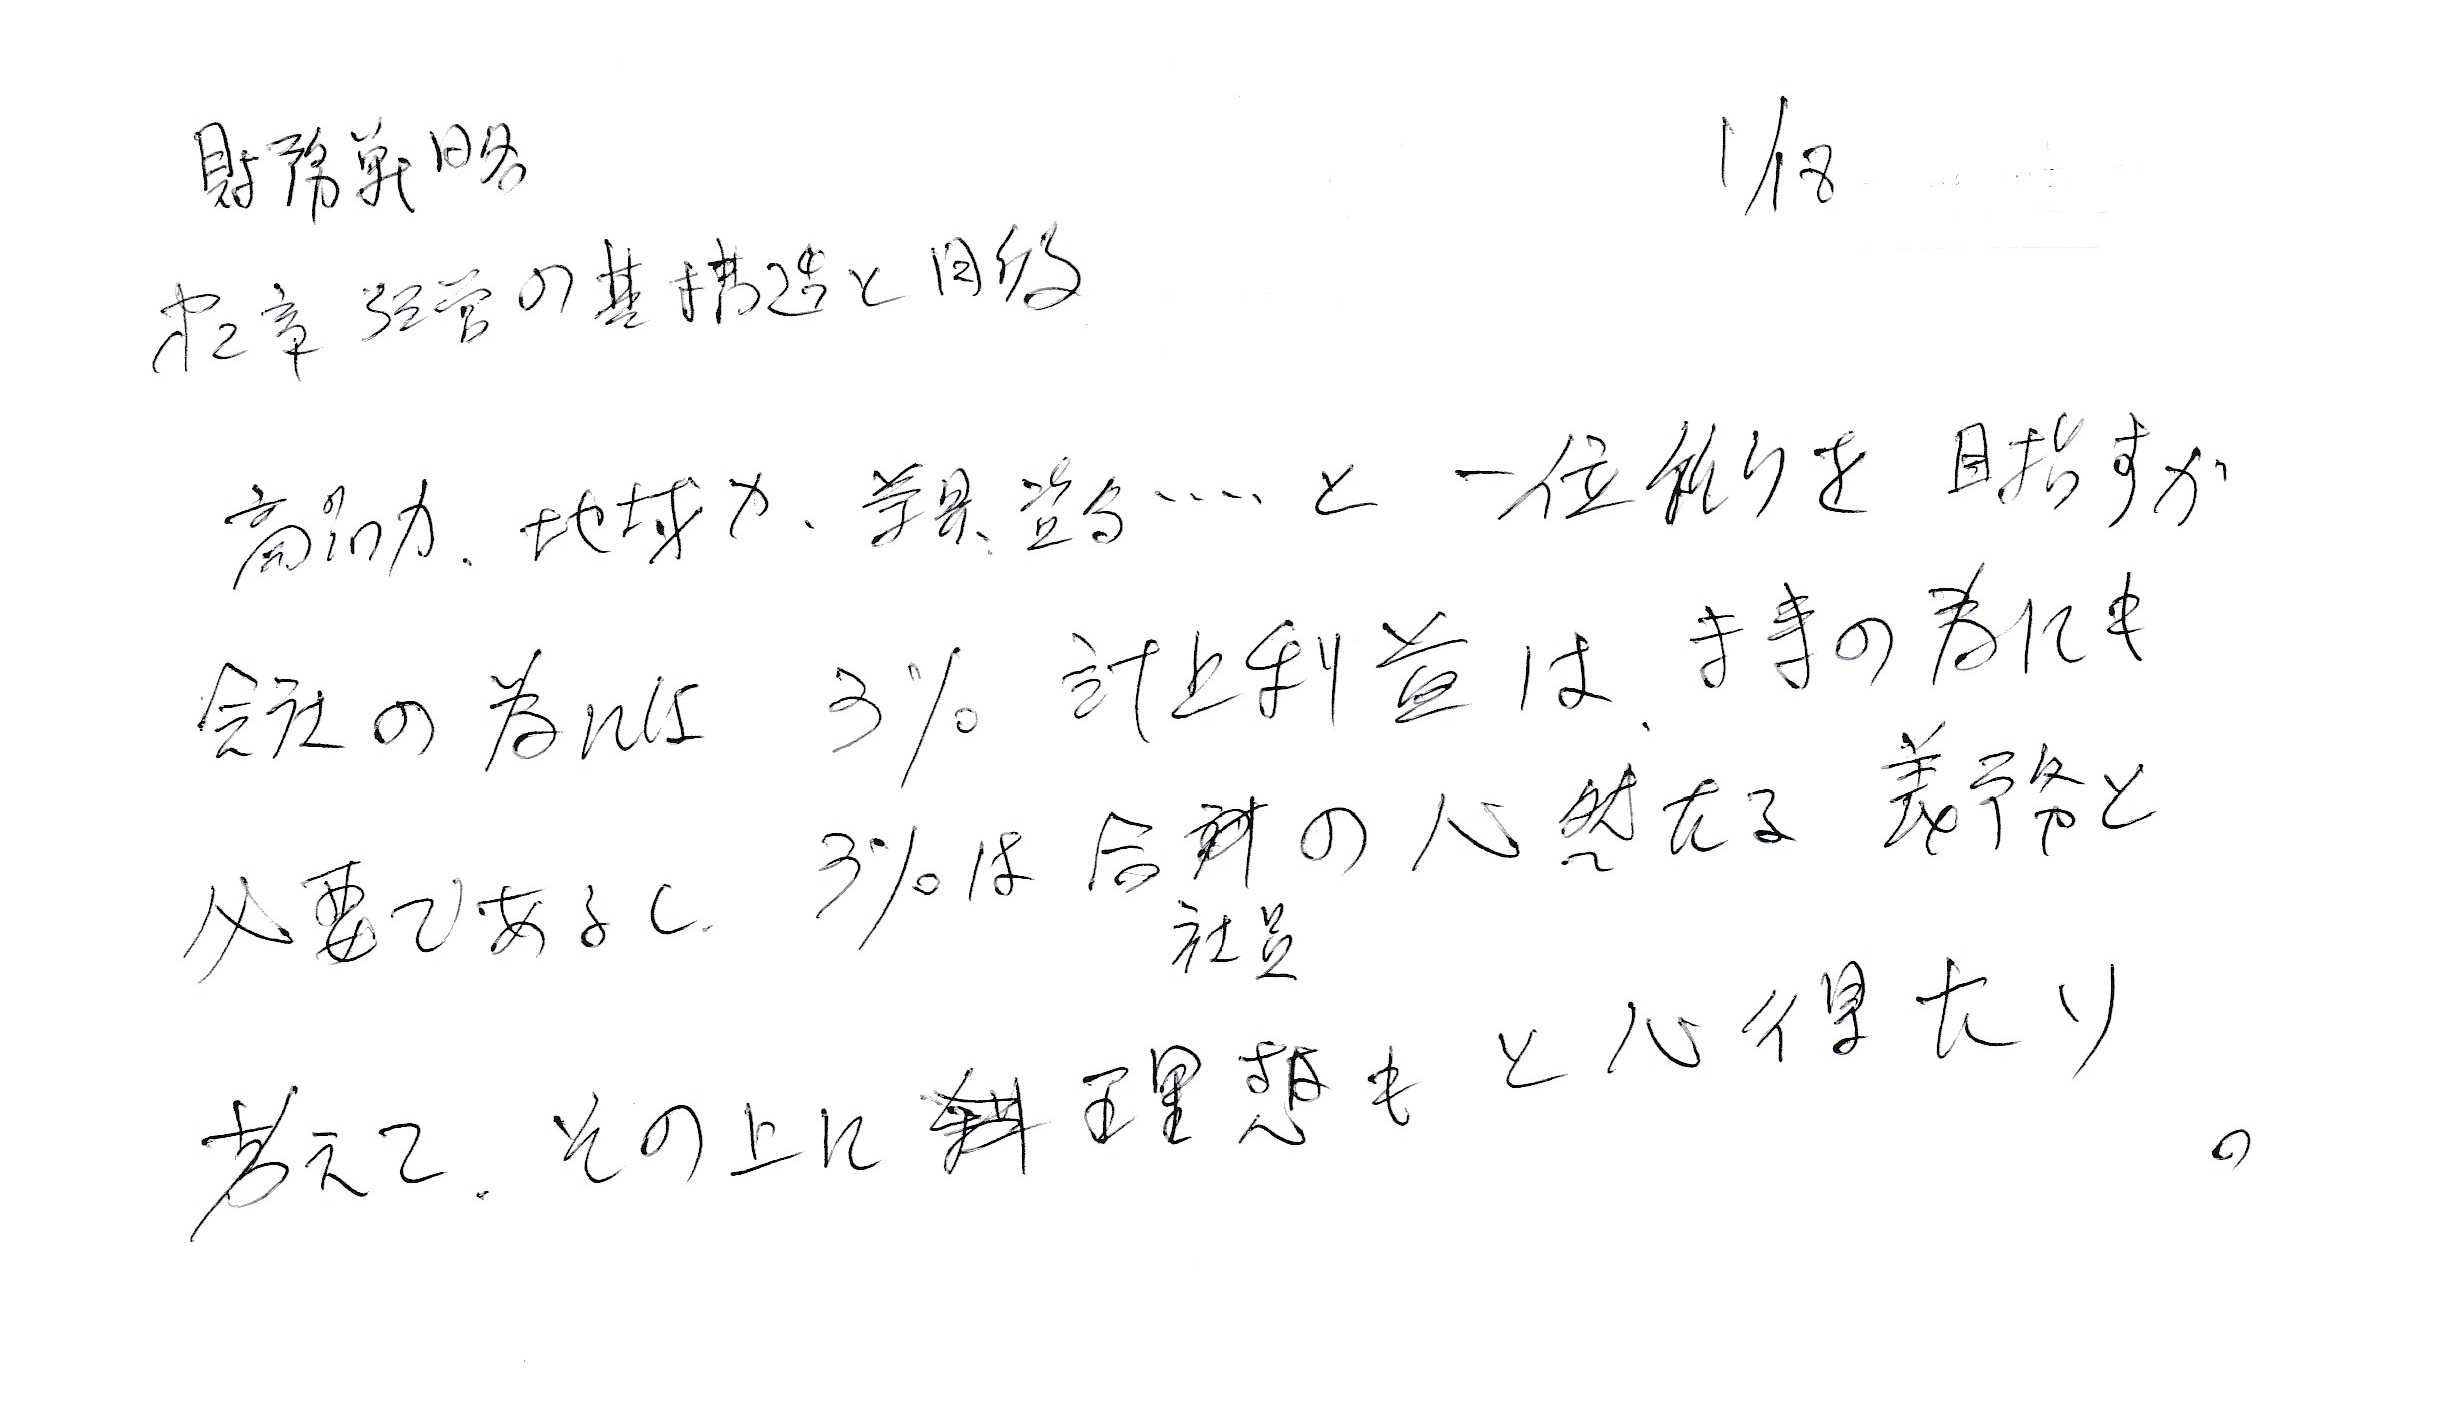 財務戦略
1/18
第2章 経営の基構造と目的
商品力、地域力、……と一位作りを目指すが
会社の為には 3% 計上利益は、の為にも
必要であるし、3%は合の必然たる義務と
社員
考えて、その上に理想もと心得たり
。